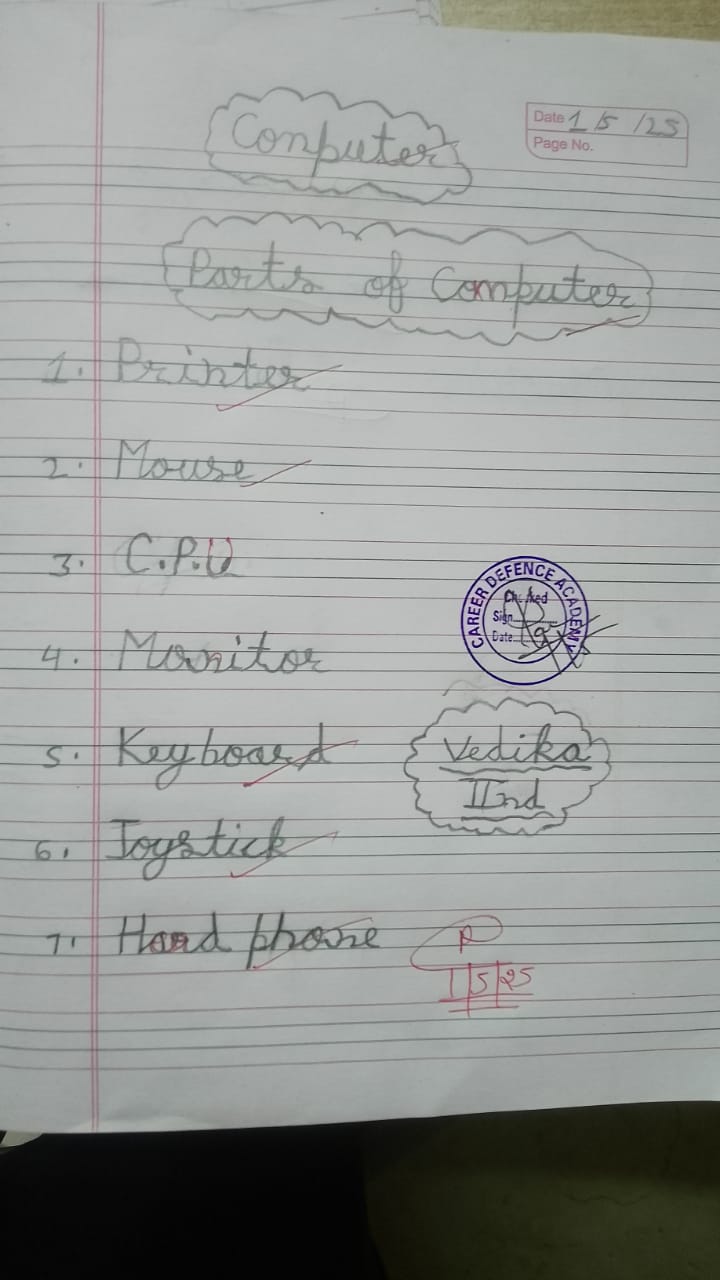 Computer
Date 1/5/25
Page No.
Parts of Computer
1. Printer
2. Mouse
3. C.P.U
4. Monitor
CAREER DEFENCE ACADEMY
Checked
Sign
Date
5. Keyboard
Vedika
IInd
6. Joystick
7. Head phone
1/5/25